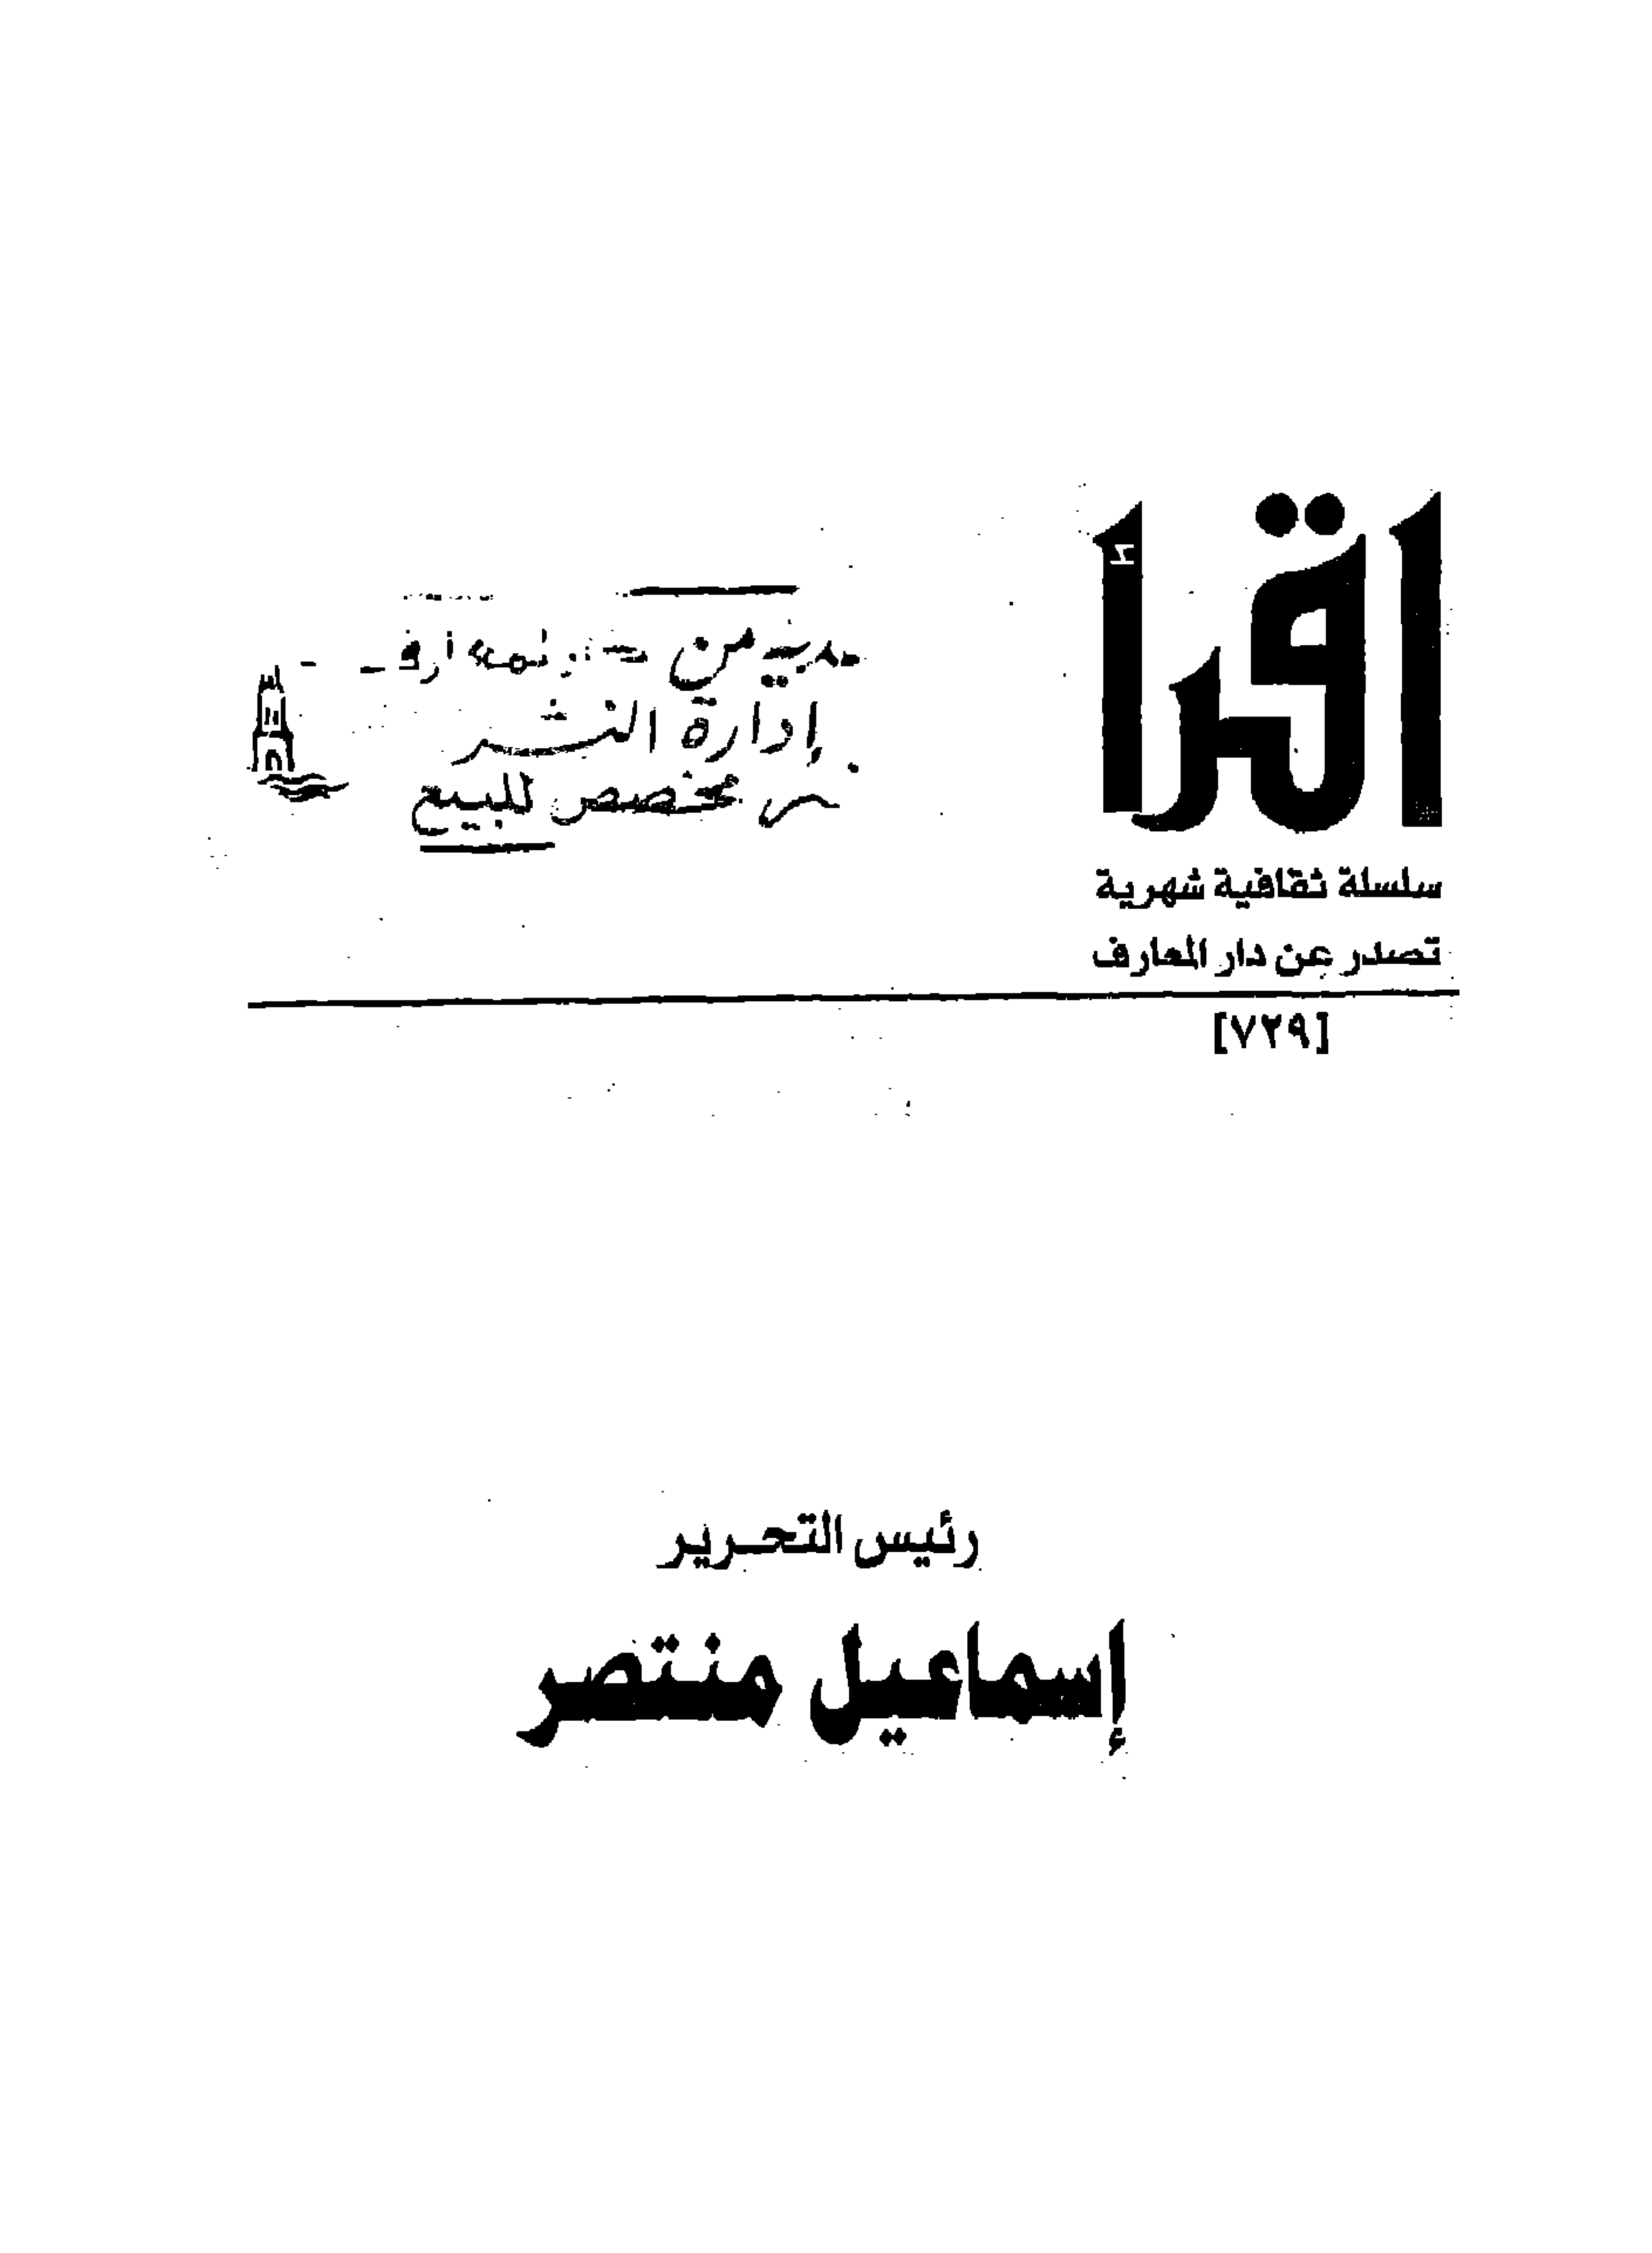 اقرأ
سلسلة ثقافية شهرية
تصدر عن دار المعارف
[٧٢٩]
إدارة النشر
مخصص للبيع
رئيس التحرير
إسماعيل منتصر